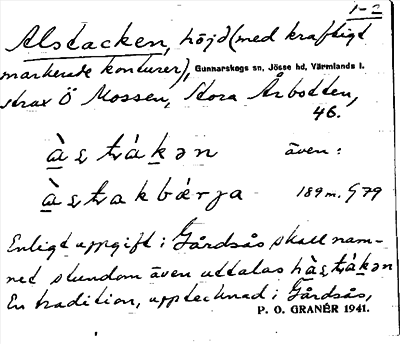 1-2
Alstacken, höjd (med kraftigt
markerade konturer), Gunnarskogs sn, Jösse hd, Värmlands l.
strax Ö Mossen, Stora Årbotten,
46.
även:
189 m. G79
Enligt uppgift i Gårdsås skall nam-
net stundom även uttalas
En tradition, upptecknad i Gårdsås,
P. O. GRANÉR 1941.